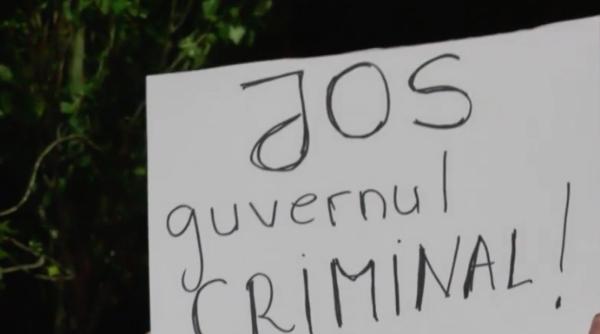 JOS
guvernul
CRiMiNAL!